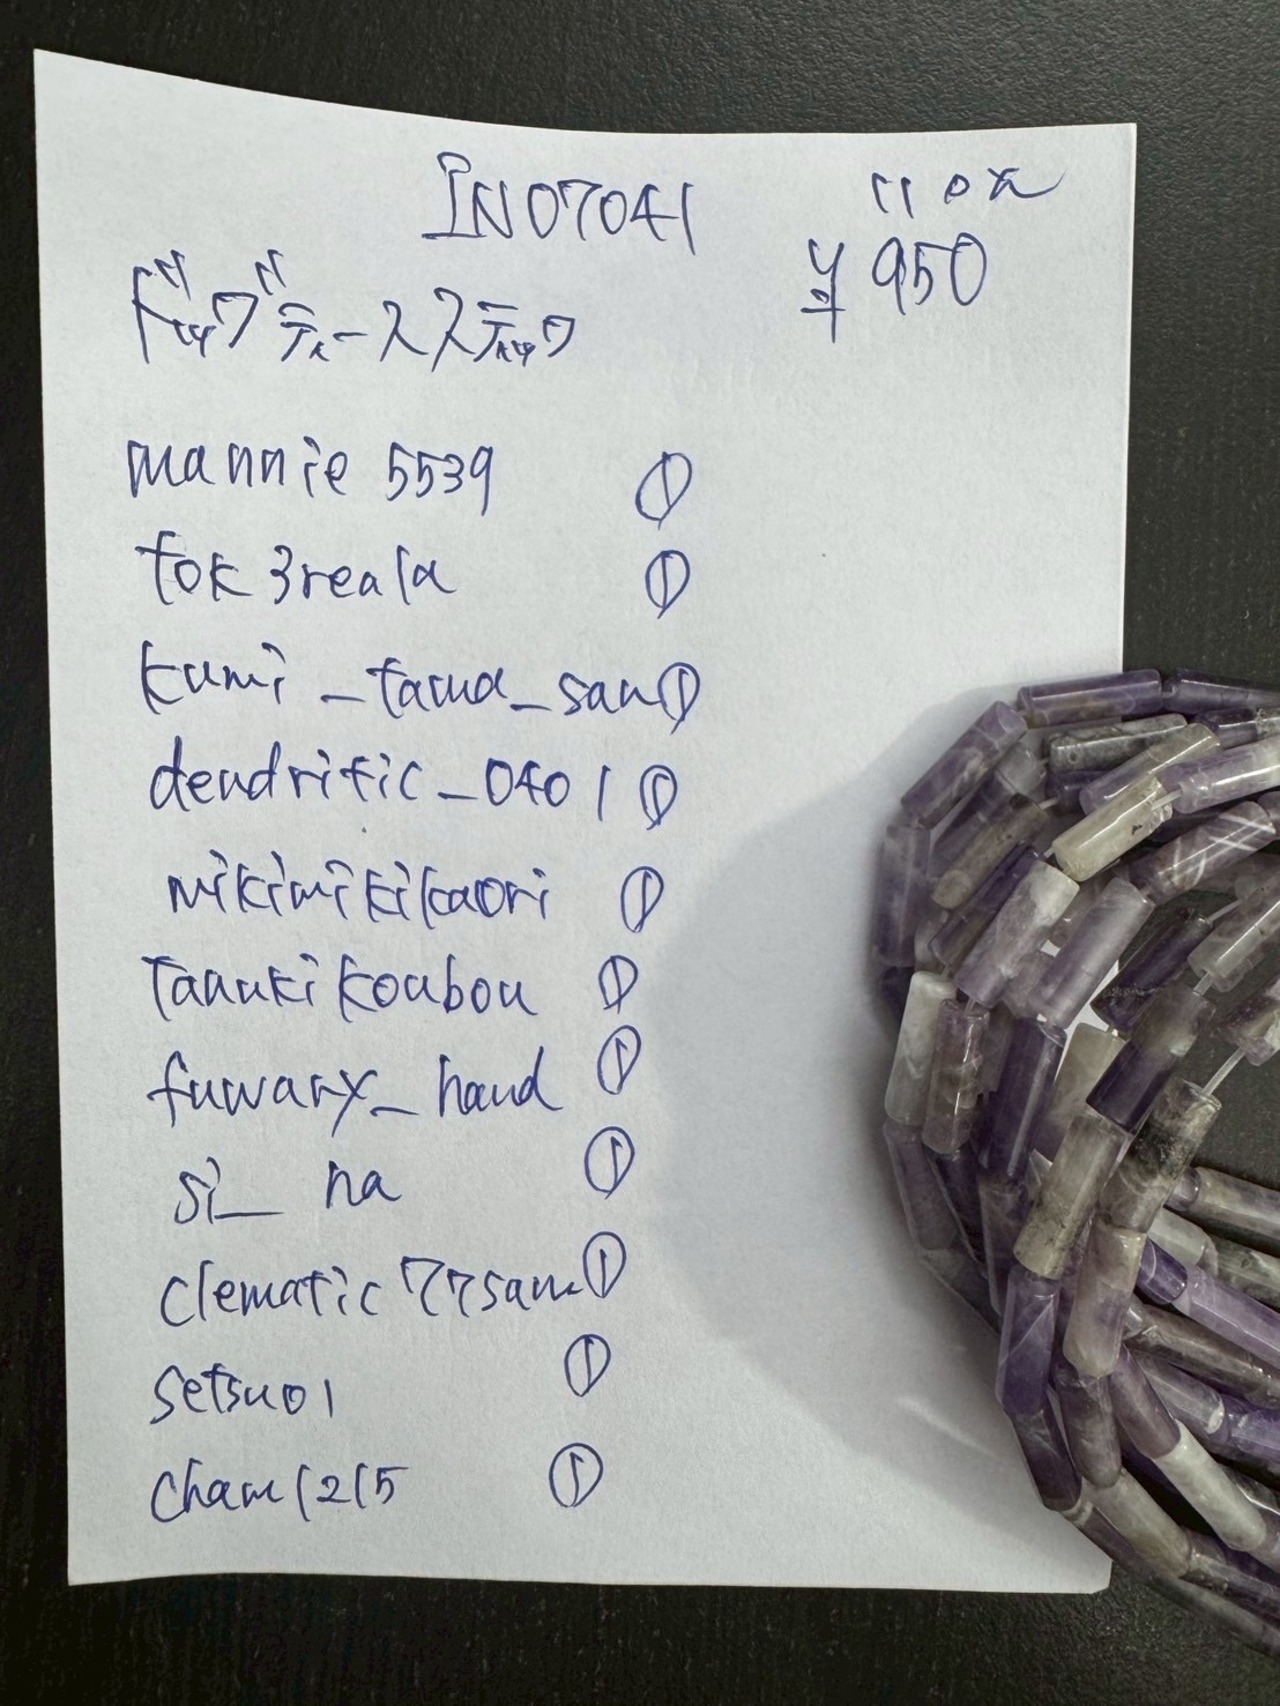 IN07041
11 0x
¥950
ドッグティーススティック
mannie 5539 ①
tok3reala ①
kumi_tama_san ①
dendritic_0401 ①
mikimikikaori ①
tanukikoubou ①
fuwary_hand ①
si_ na ①
clematic77sam ①
setsu01 ①
cham1215 ①